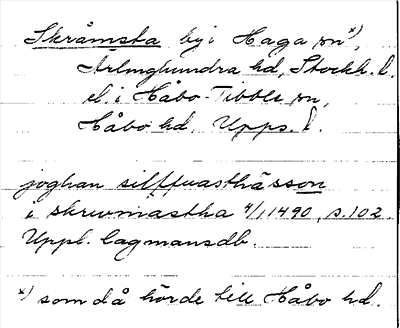 Skråmsta by i Haga sn x),
Ärlinghundra hd, Stockh. l.
el. i Håbo-Tibble sn,
Håbo hd, Upps. l.
joghan silffuasthässon
i skrwmastha 4/1 1490, s. 102
Uppl. lagmansdb.
x) som då hörde till Håbo hd.